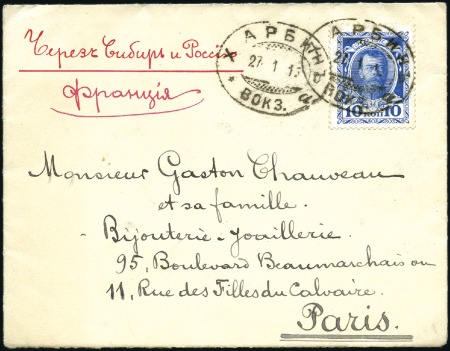 Черезъ Сибирь и Россiю
Францiя
ХАРБИНЪ
27 1 15
* ВОКЗ. а
ХАРБИНЪ
ВОКЗ.
10 КОП 10
Monsieur Gaston Chauveau
et sa famille.
Bijouterie-Joaillerie.
95, Boulevard Beaumarchais ou
11, Rue des Filles du Calvaire.
Paris.